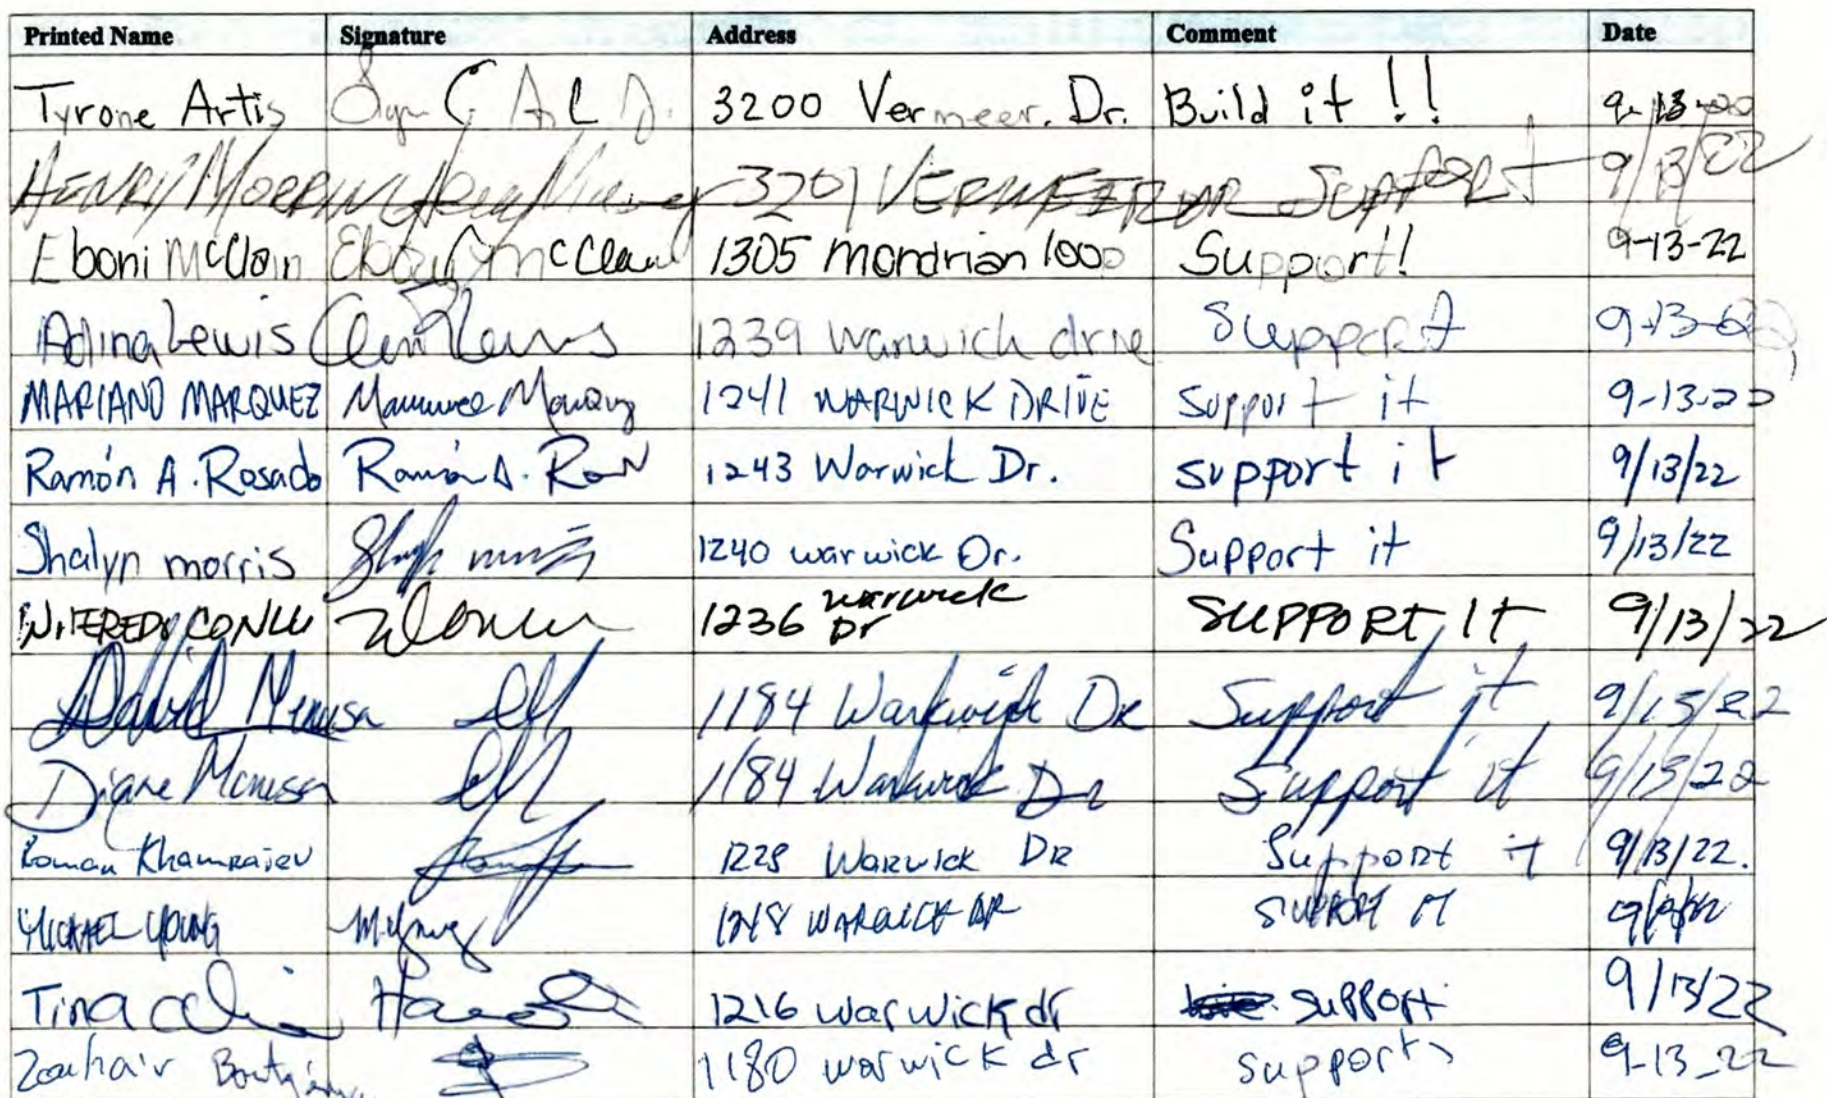 Printed Name Signature Address Comment Date
Tyrone Artis 3200 Vermeer. Dr. Build it !! 9-13-22
HENRY 3201 VERMEER DR SUPPORT 9/13/22
Eboni McClain Eboni McClain 1305 Mondrian loop Support! 9-13-22
Adina Lewis 1239 Warwich drive Support 9-13-22
MARIANO MARQUEZ 1241 WARWICK DRIVE Support it 9-13-22
Ramón A. Rosado Ramón A. 1243 Warwick Dr. support it 9/13/22
Shalyn morris 1240 warwick Dr. Support it 9/13/22
1236 warwick Dr SUPPORT It 9/13/22
David Menusa 1184 Warkwick DR Support it 9/13/22
Diane Menusa 1184 Warkwick Dr Support it 9/13/22
Roman Khamraiev 1228 WARWICK DR Support it 9/13/22.
MICKAEL YOUNG M. Young WARWICK DR SUPPORT IT
Tina 1216 warwick dr support 9/13/22
Zouhair 1180 warwick dr support 9-13-22